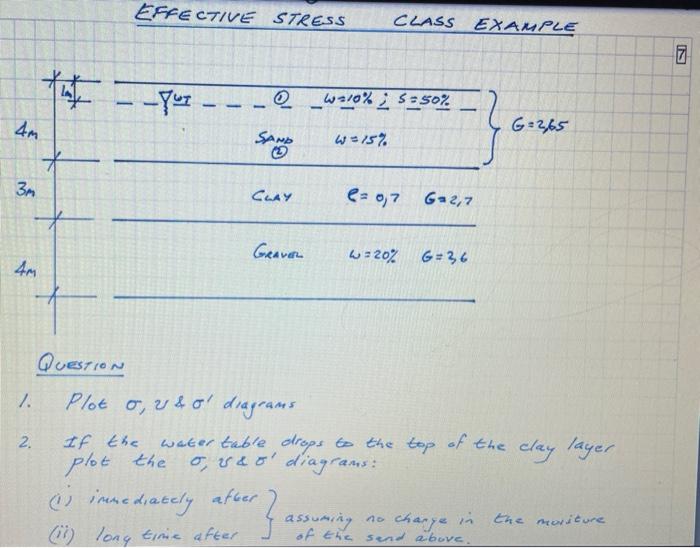 EFFECTIVE STRESS CLASS EXAMPLE
7
1m
WT ① W=10% ; S=50%
4m
G=2,65
SAND W=15%
②
3m CLAY e=0,7 G=2,7
GRAVEL W=20% G=2,6
4m
QUESTION
1. Plot σ, u & σ' diagrams
2. If the water table drops to the top of the clay layer
plot the σ, u & σ' diagrams:
(i) immediately after
(ii) long time after
assuming no change in the moisture
of the sand above.